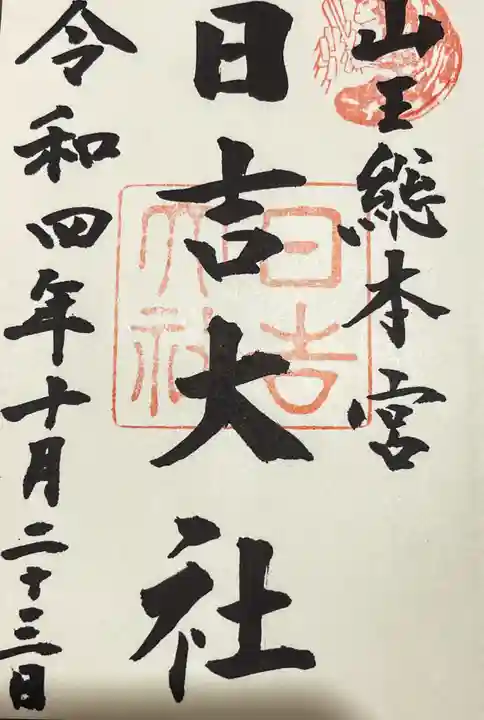 山王総本宮
日吉大社
日吉大社
令和四年十月二十三日